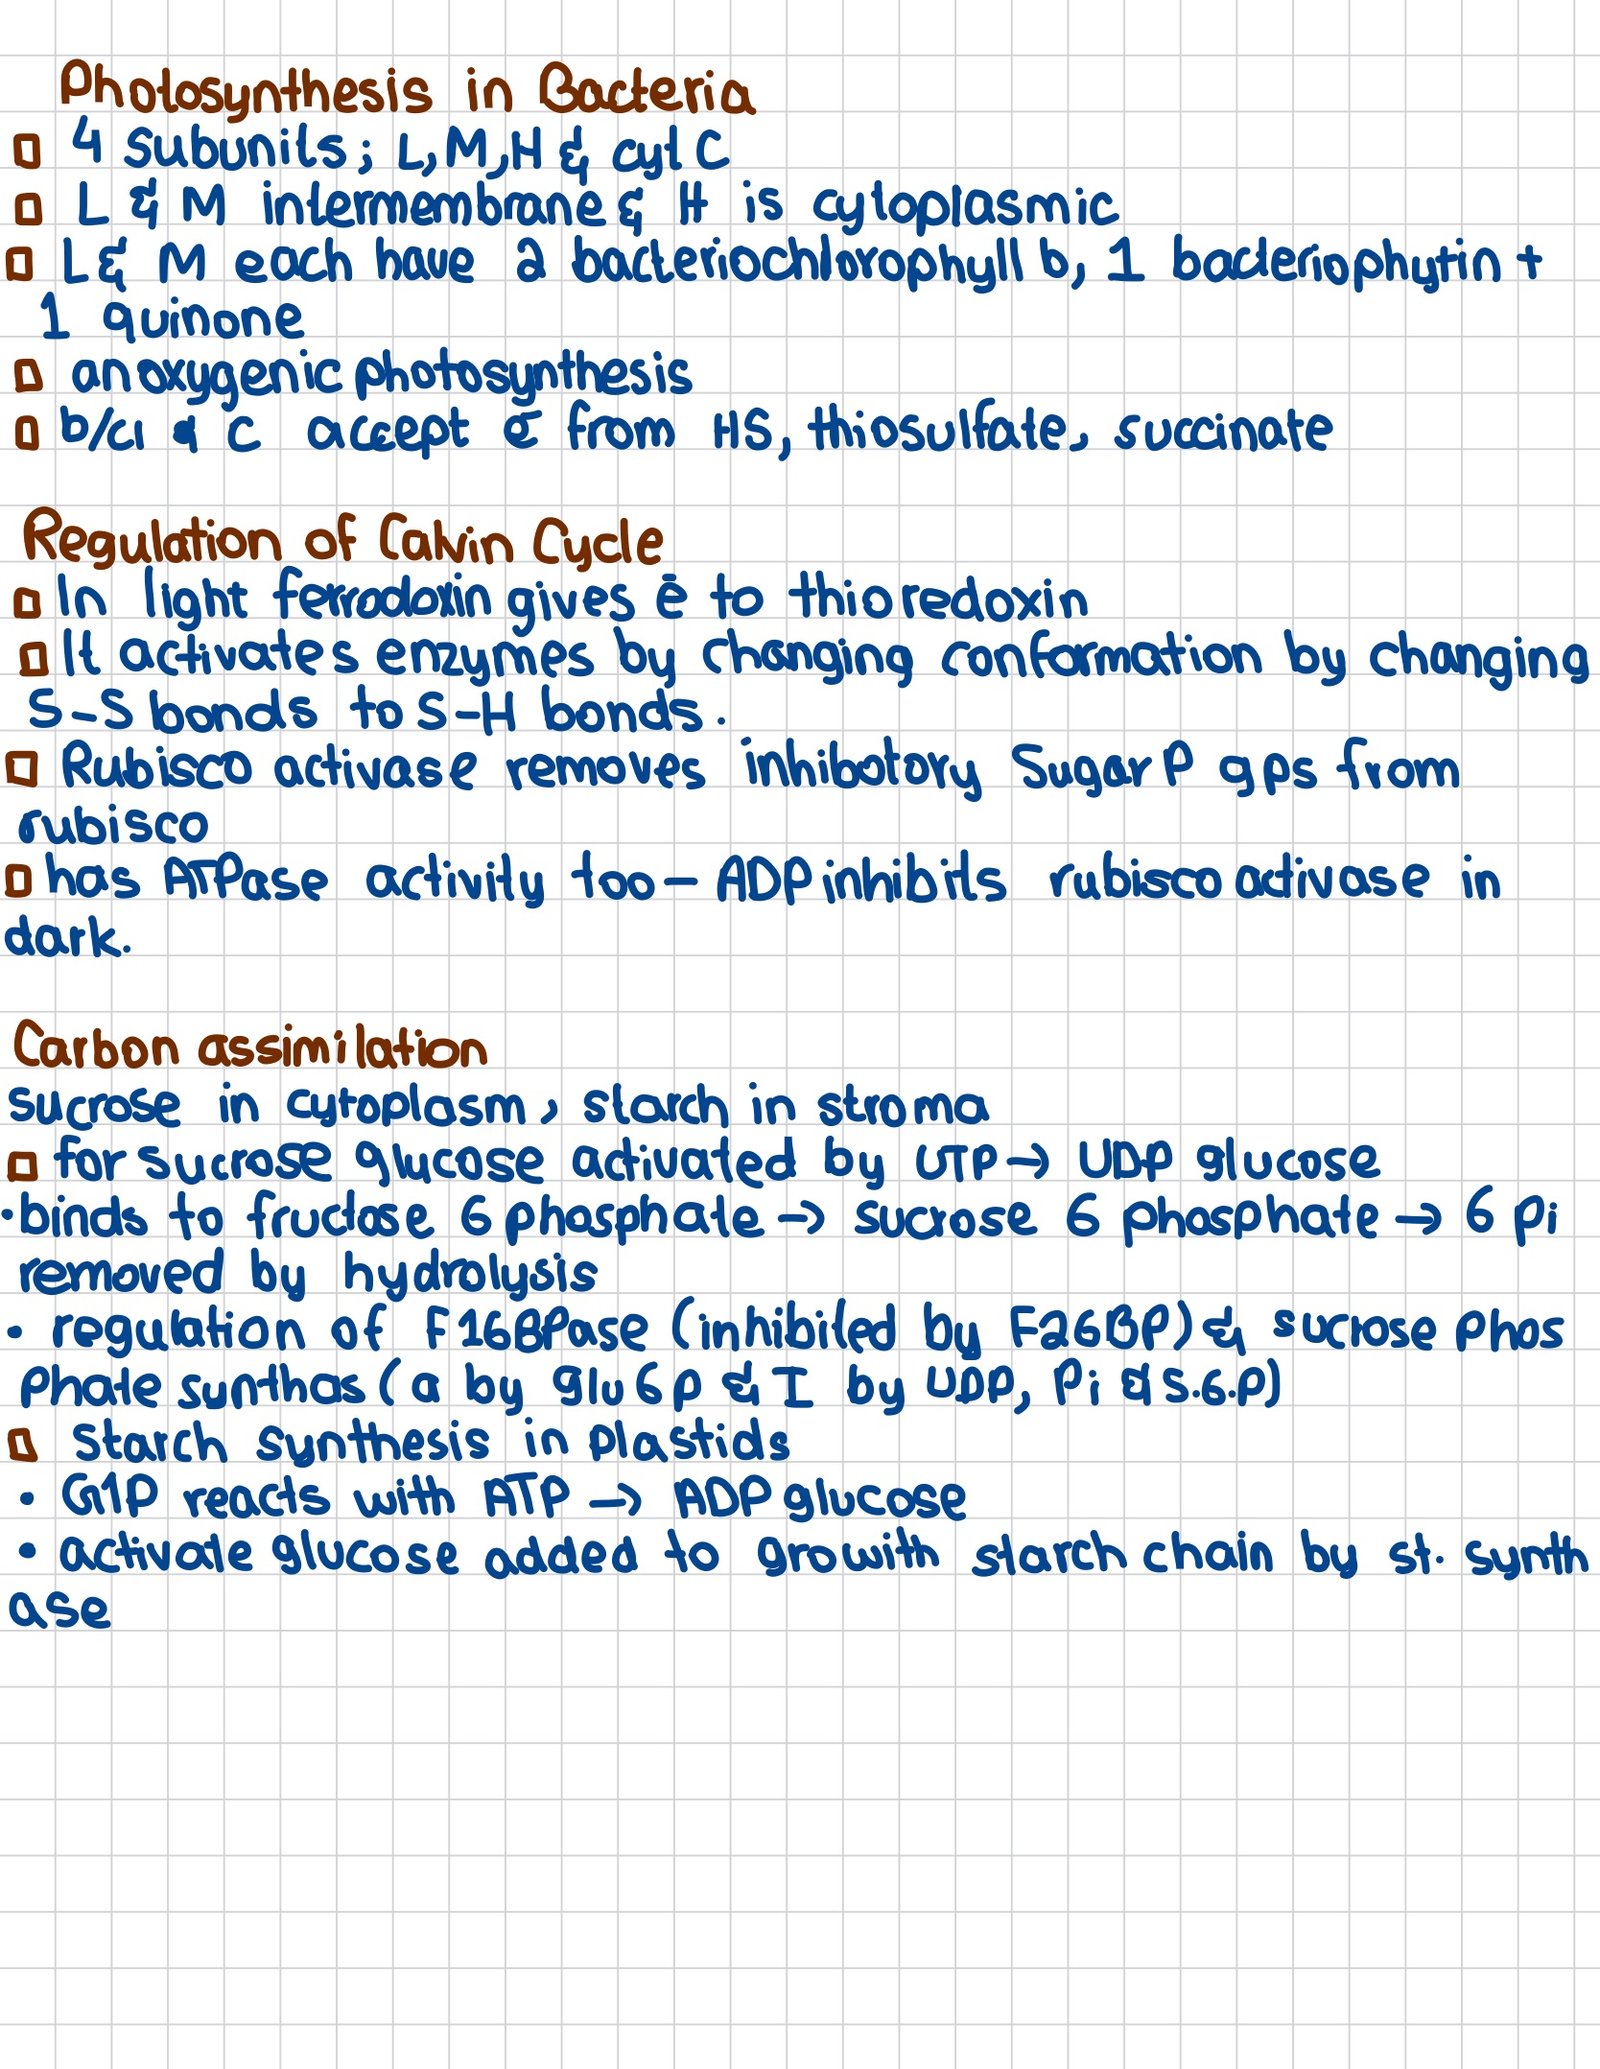 Photosynthesis in Bacteria
4 subunits; L, M, H & cyt C
L & M intermembrane & H is cytoplasmic
L & M each have 2 bacteriochlorophyll b, 1 bacteriophytin +
1 quinone
anoxygenic photosynthesis
b/c1 & c accept e̅ from HS, thiosulfate, succinate
Regulation of Calvin Cycle
In light ferrodoxin gives e̅ to thioredoxin
It activates enzymes by changing conformation by changing
S-S bonds to S-H bonds.
Rubisco activase removes inhibotory Sugar P gps from
rubisco
has ATPase activity too - ADP inhibits rubisco activase in
dark.
Carbon assimilation
sucrose in cytoplasm, starch in stroma
for sucrose glucose activated by UTP → UDP glucose
• binds to fructose 6 phosphate → sucrose 6 phosphate → 6 Pi
removed by hydrolysis
• regulation of F16BPase (inhibited by F26BP) & sucrose phos
phate synthas (a by glu 6 p & I by UDP, Pi & S.6.P)
Starch synthesis in plastids
• G1P reacts with ATP → ADP glucose
• activate glucose added to growith starch chain by st. synth
ase